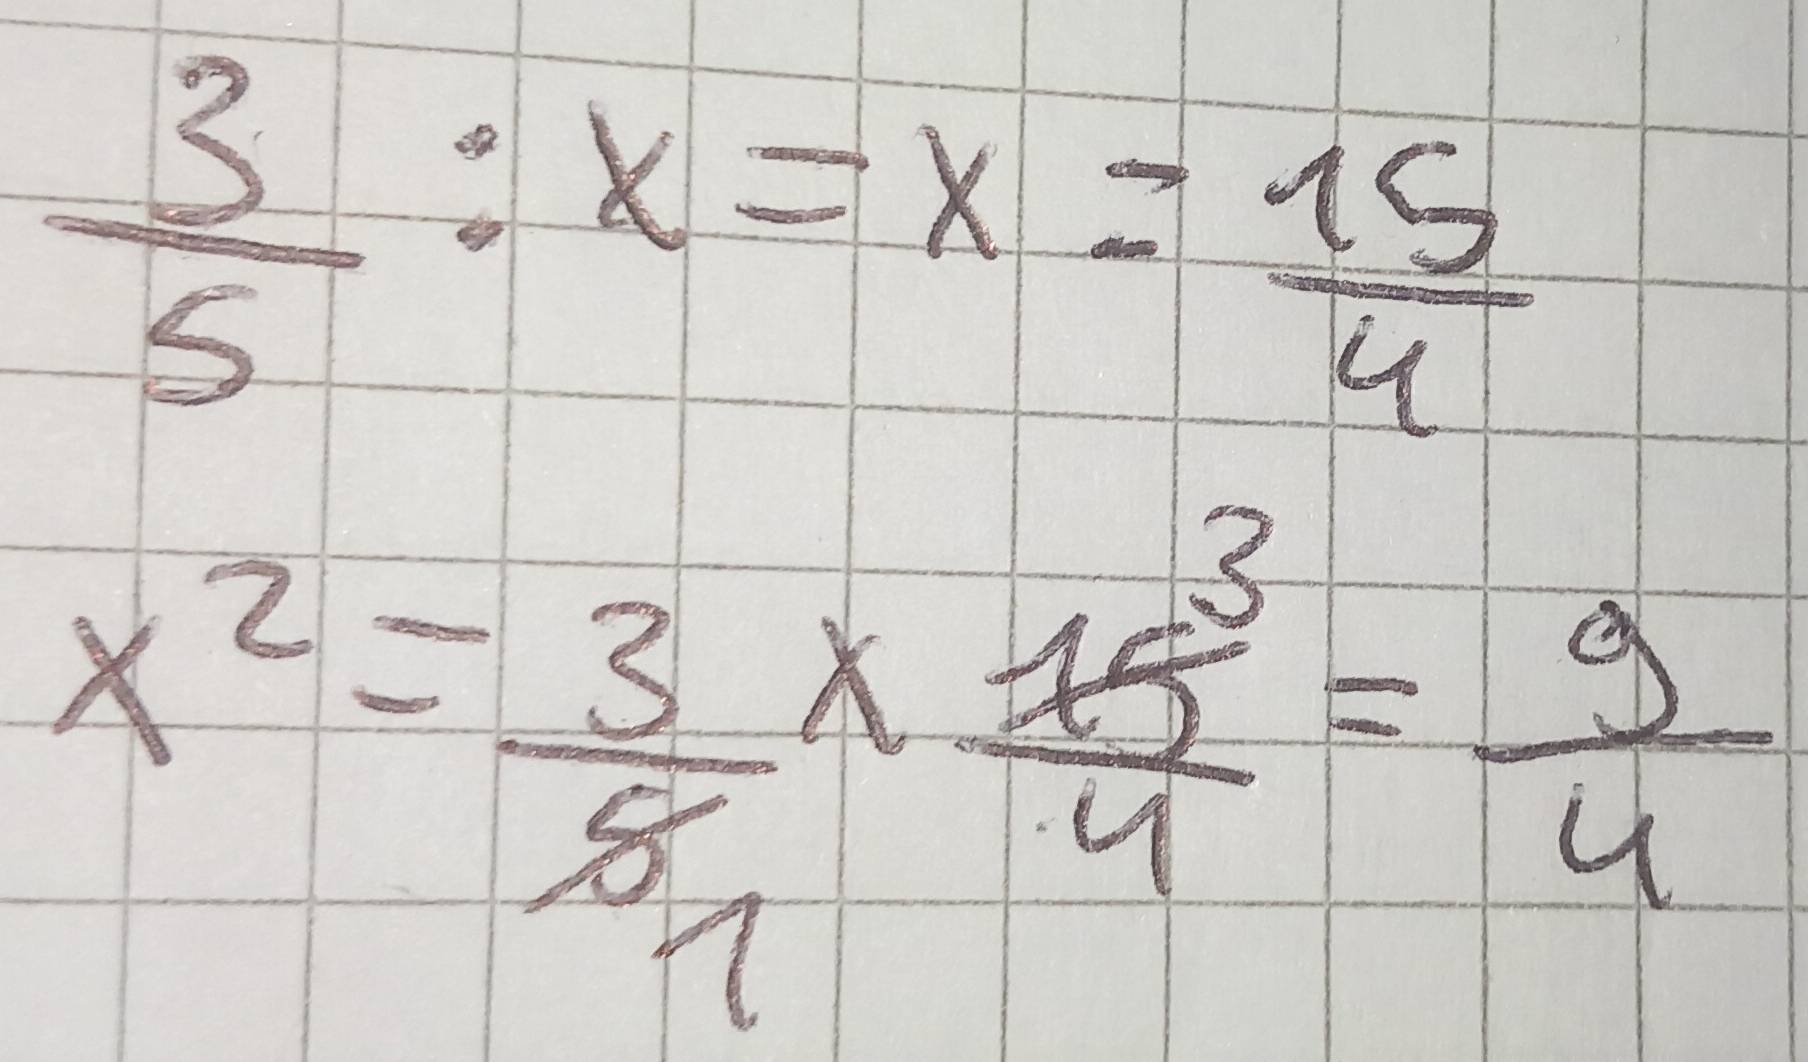 3/5 : x = x = 15/4
x² = 3/5 1 x 15/4 3 = 9/4